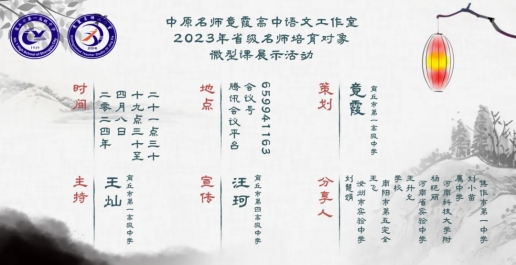 中原名师竟霞高中语文工作室
2023年省级名师培育对象
微型课展示活动
时间
二〇二四年
四月八日
十九点三十至
二十一点三十
地点
腾讯会议平台
会议号
659941163
策划
竟霞
商丘市第一高级中学
主持
王灿
商丘市第一高级中学
宣传
汪珂
商丘市第四高级中学
分享人
刘慧娟
汝州市实验中学
王飞
南阳市第五完全
学校
王升允
河南省实验中学
杨艳丽
河南科技大学附
属中学
刘小苗
焦作市第一中学